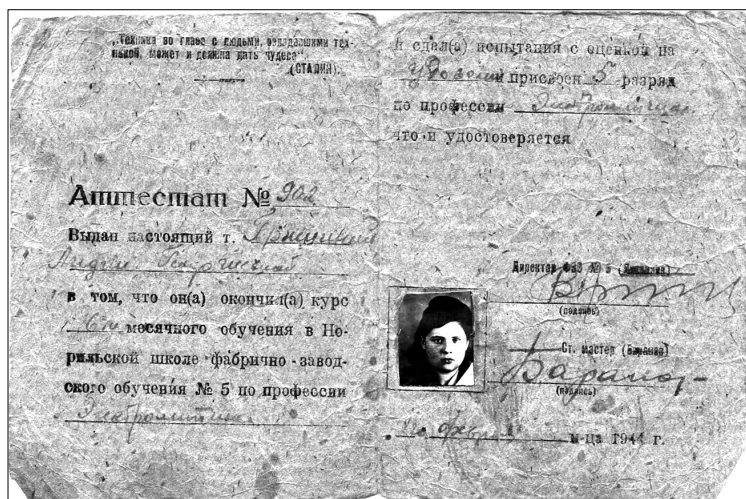 „Техника во главе с людьми, овладевшими тех-
никой, может и должна дать чудеса“.
(СТАЛИН).
Аттестат № 902
Выдан настоящий т.
Лидии
в том, что он(а) окончил(а) курс
6ти месячного обучения в Но-
рильской школе фабрично-завод-
ского обучения № 5 по профессии
и сдал(а) испытания с оценкой на
присвоен 5 разряд
по профессии
что и удостоверяется
Директор ФЗО № 5
(подпись)
Ст. мастер (Баранов)
Баранов
(подпись)
м-ца 1944 г.